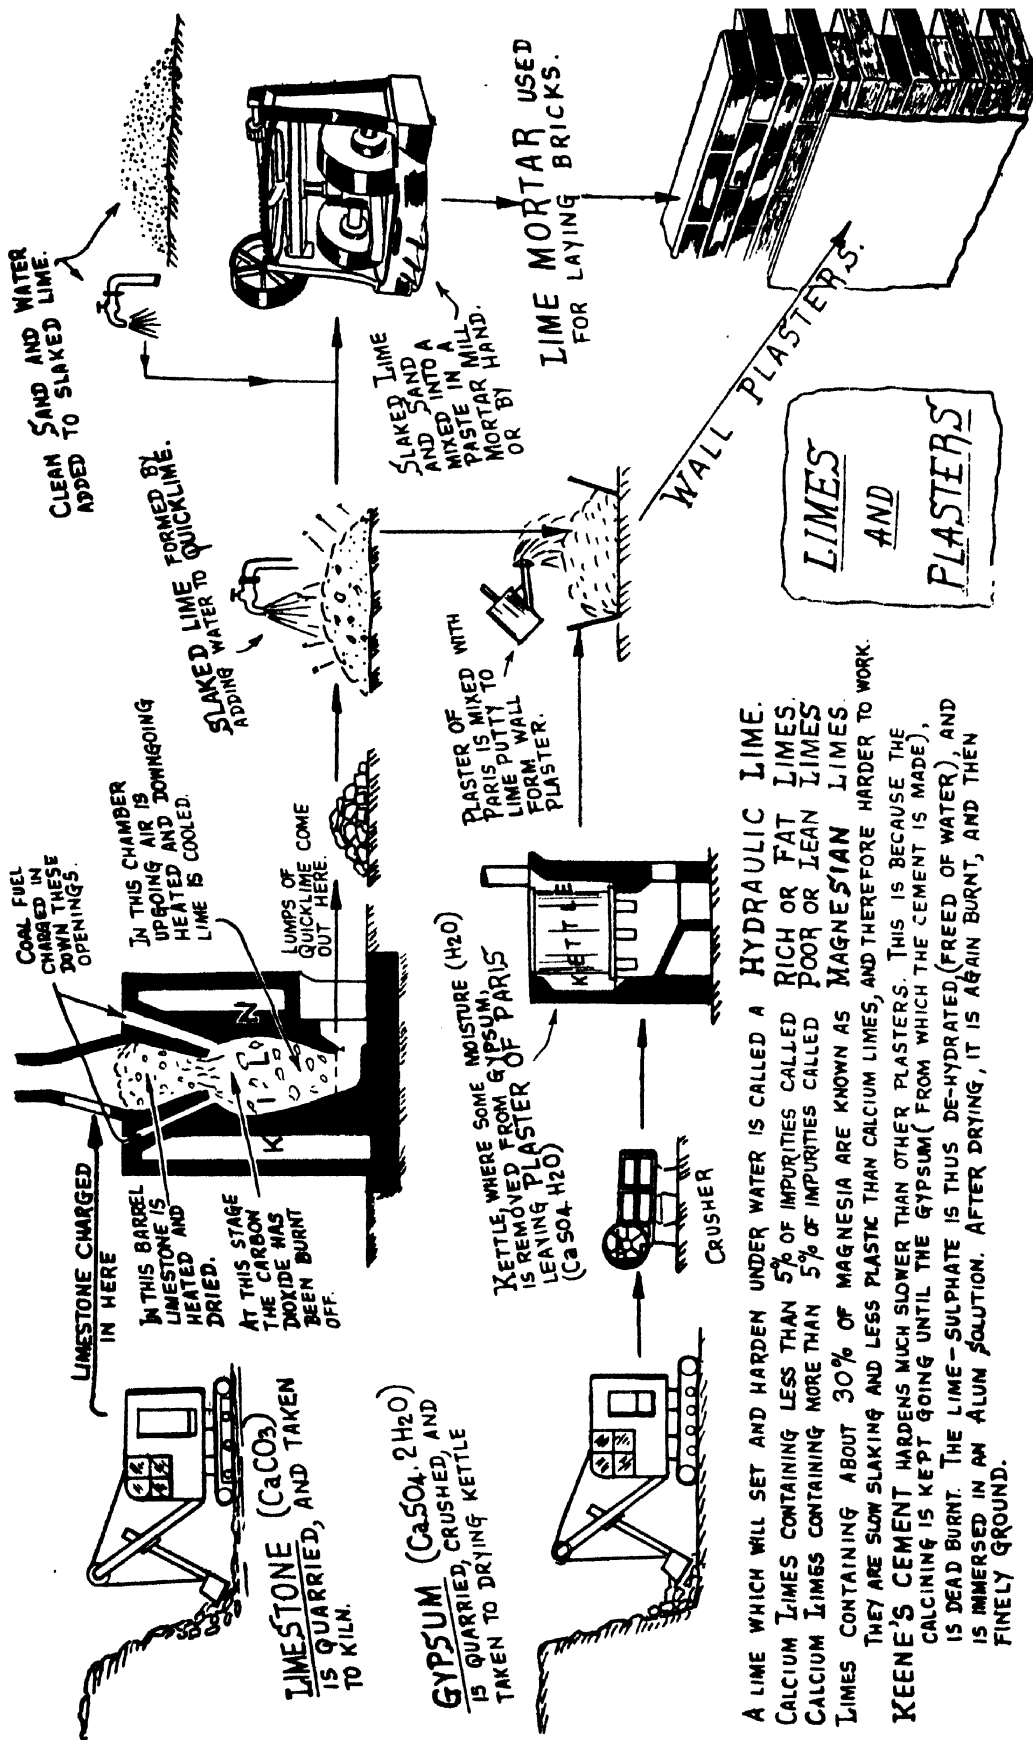 CLEAN SAND AND WATER
ADDED TO SLAKED LIME.
SLAKED LIME FORMED BY
ADDING WATER TO QUICKLIME.
COAL FUEL
CHARGED IN
DOWN THESE
OPENINGS.
IN THIS CHAMBER
UPGOING AIR IS
HEATED AND DOWNGOING
LIME IS COOLED.
LIMESTONE CHARGED
IN HERE
IN THIS BARREL
LIMESTONE IS
HEATED AND
DRIED.
AT THIS STAGE
THE CARBON
DIOXIDE HAS
BEEN BURNT
OFF.
KILN
LUMPS OF
QUICKLIME COME
OUT HERE.
LIMESTONE (CaCO3)
IS QUARRIED, AND TAKEN
TO KILN.
SLAKED LIME
AND SAND
MIXED INTO A
PASTE IN A
MORTAR MILL
OR BY HAND.
LIME MORTAR USED
FOR LAYING BRICKS.
GYPSUM (CaSO4.2H2O)
IS QUARRIED, CRUSHED, AND
TAKEN TO DRYING KETTLE
CRUSHER
KETTLE, WHERE SOME MOISTURE (H2O)
IS REMOVED FROM GYPSUM,
LEAVING PLASTER OF PARIS
(CaSO4 H2O)
KETTLE
PLASTER OF
PARIS IS MIXED WITH
LIME PUTTY TO
FORM WALL
PLASTER.
WALL PLASTERS.
LIMES
AND
PLASTERS
A LIME WHICH WILL SET AND HARDEN UNDER WATER IS CALLED A HYDRAULIC LIME.
CALCIUM LIMES CONTAINING LESS THAN 5% OF IMPURITIES CALLED RICH OR FAT LIMES.
CALCIUM LIMES CONTAINING MORE THAN 5% OF IMPURITIES CALLED POOR OR LEAN LIMES
LIMES CONTAINING ABOUT 30% OF MAGNESIA ARE KNOWN AS MAGNESIAN LIMES.
THEY ARE SLOW SLAKING AND LESS PLASTIC THAN CALCIUM LIMES, AND THEREFORE HARDER TO WORK.
KEENE'S CEMENT HARDENS MUCH SLOWER THAN OTHER PLASTERS. THIS IS BECAUSE THE
CALCINING IS KEPT GOING UNTIL THE GYPSUM (FROM WHICH THE CEMENT IS MADE),
IS DEAD BURNT. THE LIME-SULPHATE IS THUS DE-HYDRATED (FREED OF WATER), AND
IS IMMERSED IN AN ALUM SOLUTION. AFTER DRYING, IT IS AGAIN BURNT, AND THEN
FINELY GROUND.